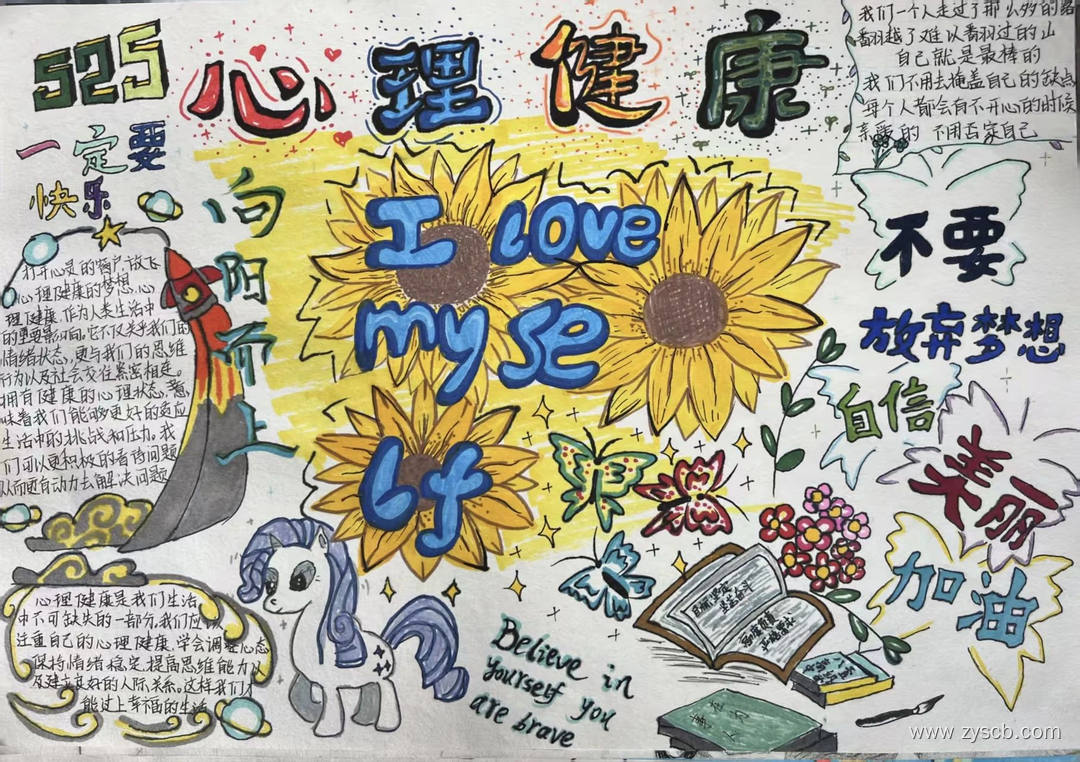 525
心理健康
一定要
快乐
向阳而上
I love
my se
lf
我们一个人走过了那么多的路
翻越了难以翻过的山
自己就是最棒的
我们不用去掩盖自己的缺点
每个人都会有不开心的时候
亲爱的 不用去家自己
不要
放弃梦想
自信
美丽
加油
打开心灵的窗户,放飞
心理健康的梦想,心
理健康,作为人类生活中
的重要影响,它不仅关乎我们的
情绪状态,更与我们的思维
行为以及社会交往紧密相连。
拥有健康的心理状态,意
味着我们能够更好的适应
生活中的挑战和压力。我
们可以更积极的看待问题
从而更自动力去解决问题
心理健康是我们生活
中不可缺失的一部分,我们应该
注重自己的心理健康,学会调整心态
保持情绪稳定,提高思维能力以
及建立良好的人际关系。这样我们才
能过上幸福的生活
Believe in
yourself you
are brave
www.zyscb.com